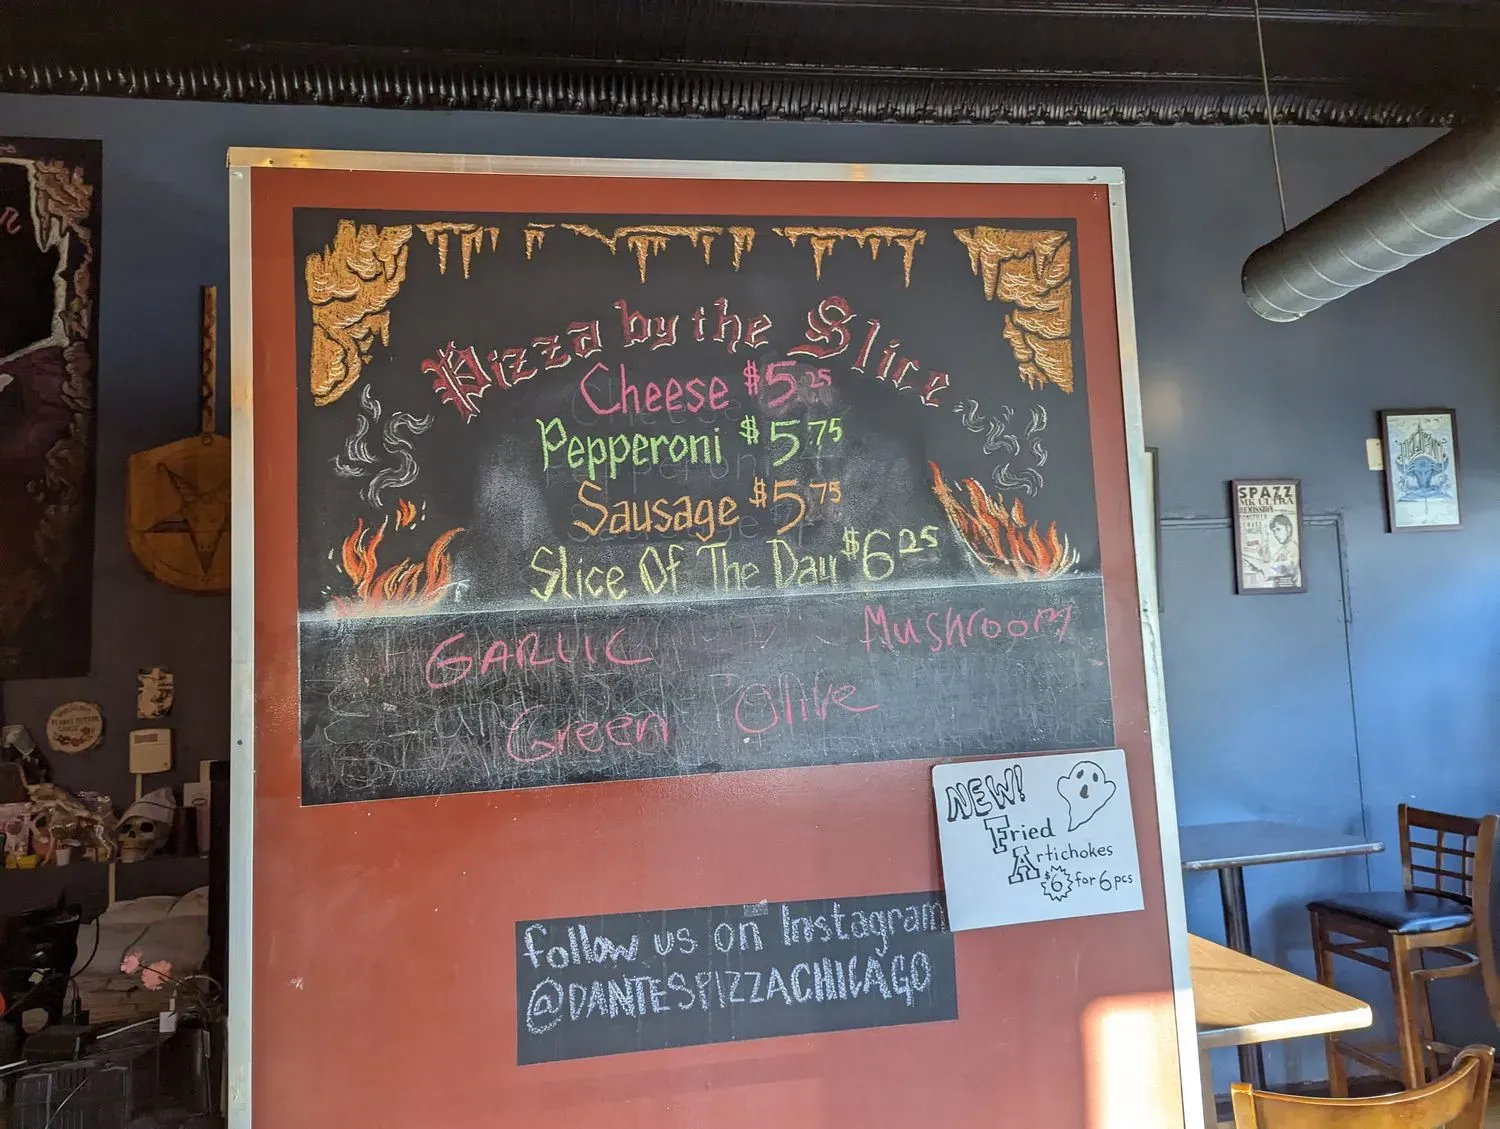 Pizza by the Slice
Cheese $5.25
Pepperoni $5.75
Sausage $5.75
Slice Of The Day $6.25
GARLIC Mushroom
Green Olive
NEW!
Fried
Artichokes
$6 for 6 pcs
follow us on Instagram
@DANTESPIZZACHICAGO
SPAZZ
MK ULTRA
REMISSION